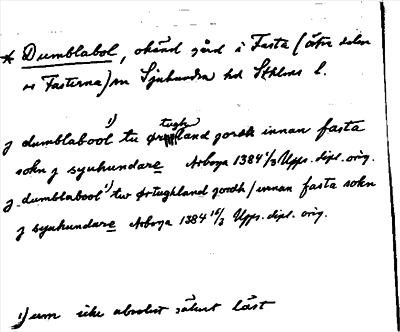 * Dumblabol, okänd gård i Fasta (åtre delen
av Fasterna) sn Sjuhundra hd Sthlms l.
j dumblabool 1) tu ørtughland jordh innan fasta
sokn j syuhundare Arboga 1384 1/3 Upps. dipl. orig.
j dumblabool 1) tw ørtughland jordh / innan fasta sokn
j syuhundare Arboga 1384 10/3 Upps. dipl. orig.
1) um icke absolut säkert läst